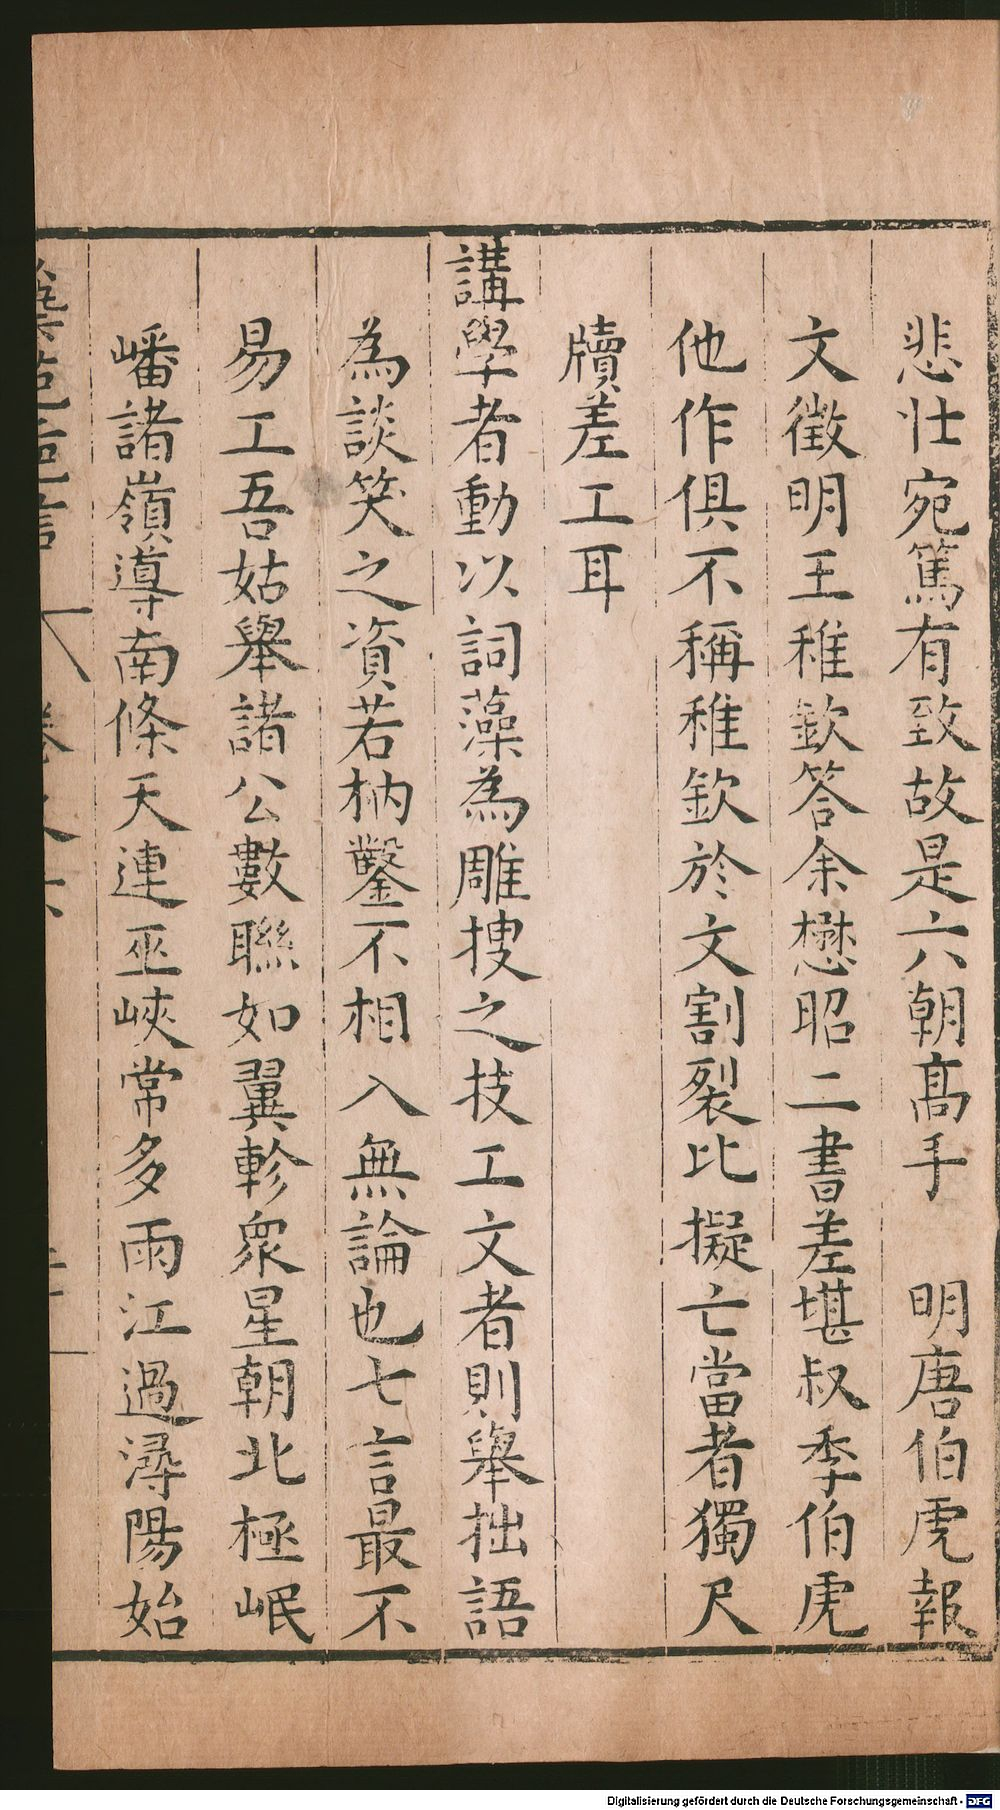 悲壯宛篤有致故是六朝高手　明唐伯虎報
文徵明王稚欽答余懋昭二書差堪叔季伯虎
他作俱不稱稚欽於文割裂比擬亡當者獨尺
牘差工耳
講學者動以詞藻為雕搜之技工文者則舉拙語
為談笑之資若枘鑿不相入無論也七言最不
易工吾姑舉諸公數聯如翼軫衆星朝北極岷
嶓諸嶺導南條天連巫峽常多雨江過潯陽始
卷之六
Digitalisierung gefördert durch die Deutsche Forschungsgemeinschaft - DFG